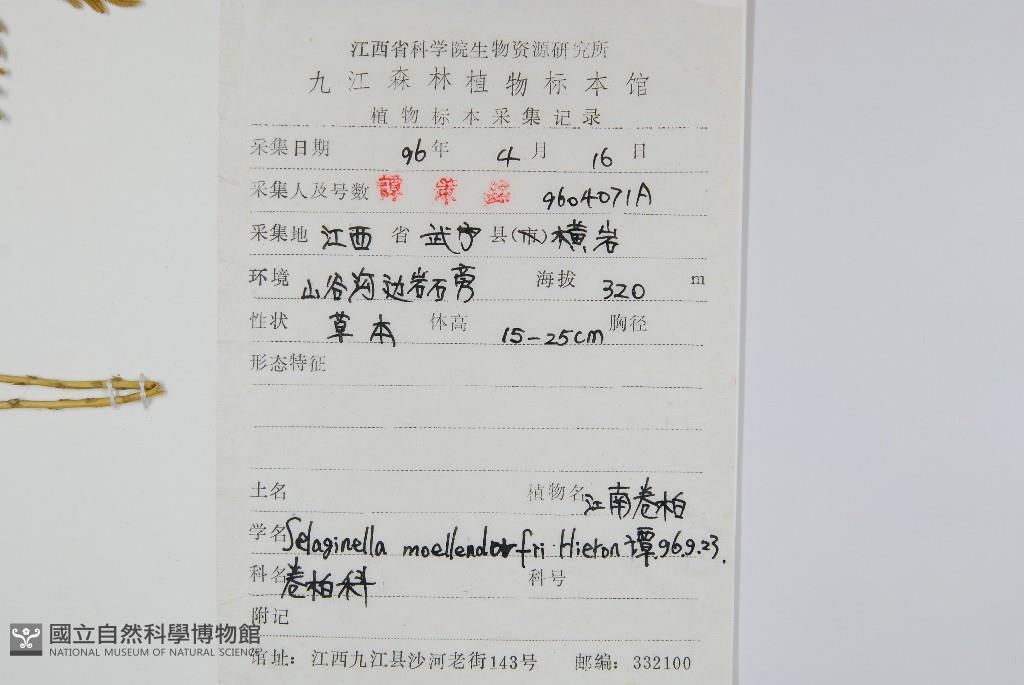 江西省科学院生物资源研究所
九江森林植物标本馆
植物标本采集记录
采集日期 96年 4月 16日
采集人及号数 譚 策 铭 9604071A
采集地 江西 省 武宁 县(市) 横岩
环境 山谷沟边岩石旁 海拔 320 m
性状 草本 体高 15-25cm 胸径
形态特征
土名 植物名 江南卷柏
学名 Selaginella moellendorffri Hieron 譚 96.9.23.
科名 卷柏科 科号
附记
馆址: 江西九江县沙河老街143号 邮编: 332100
國立自然科學博物館
NATIONAL MUSEUM OF NATURAL SCIENCE